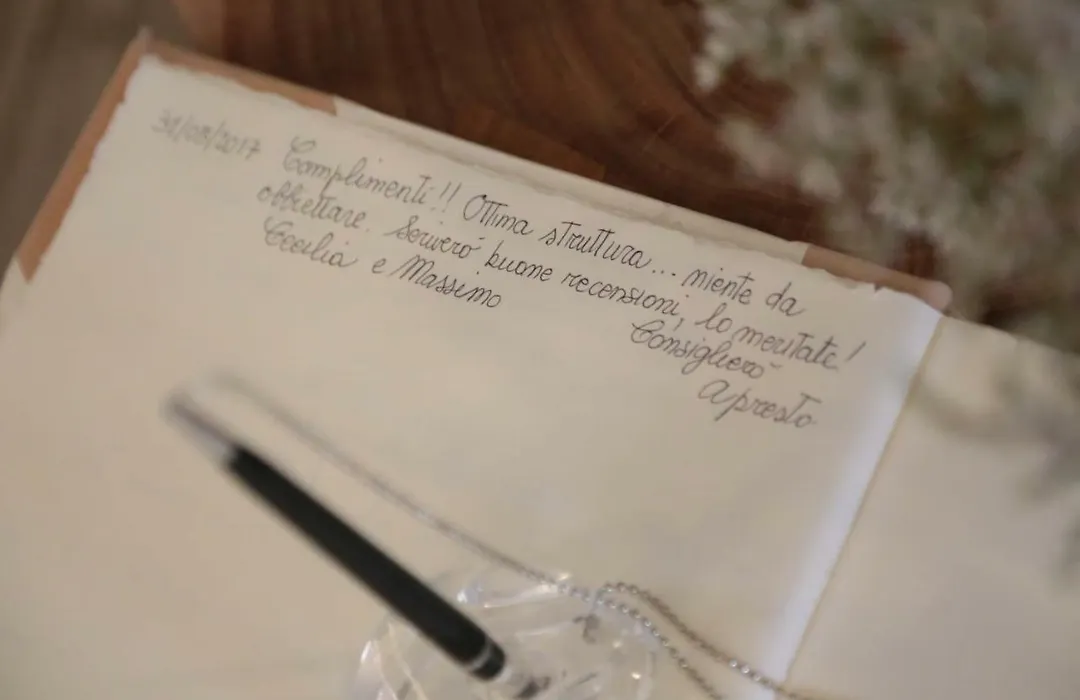 31/08/2017 Complimenti!! Ottima struttura... niente da
obbiettare. Scriverò buone recensioni, lo meritate!
Cecilia e Massimo
Consiglierò
A presto